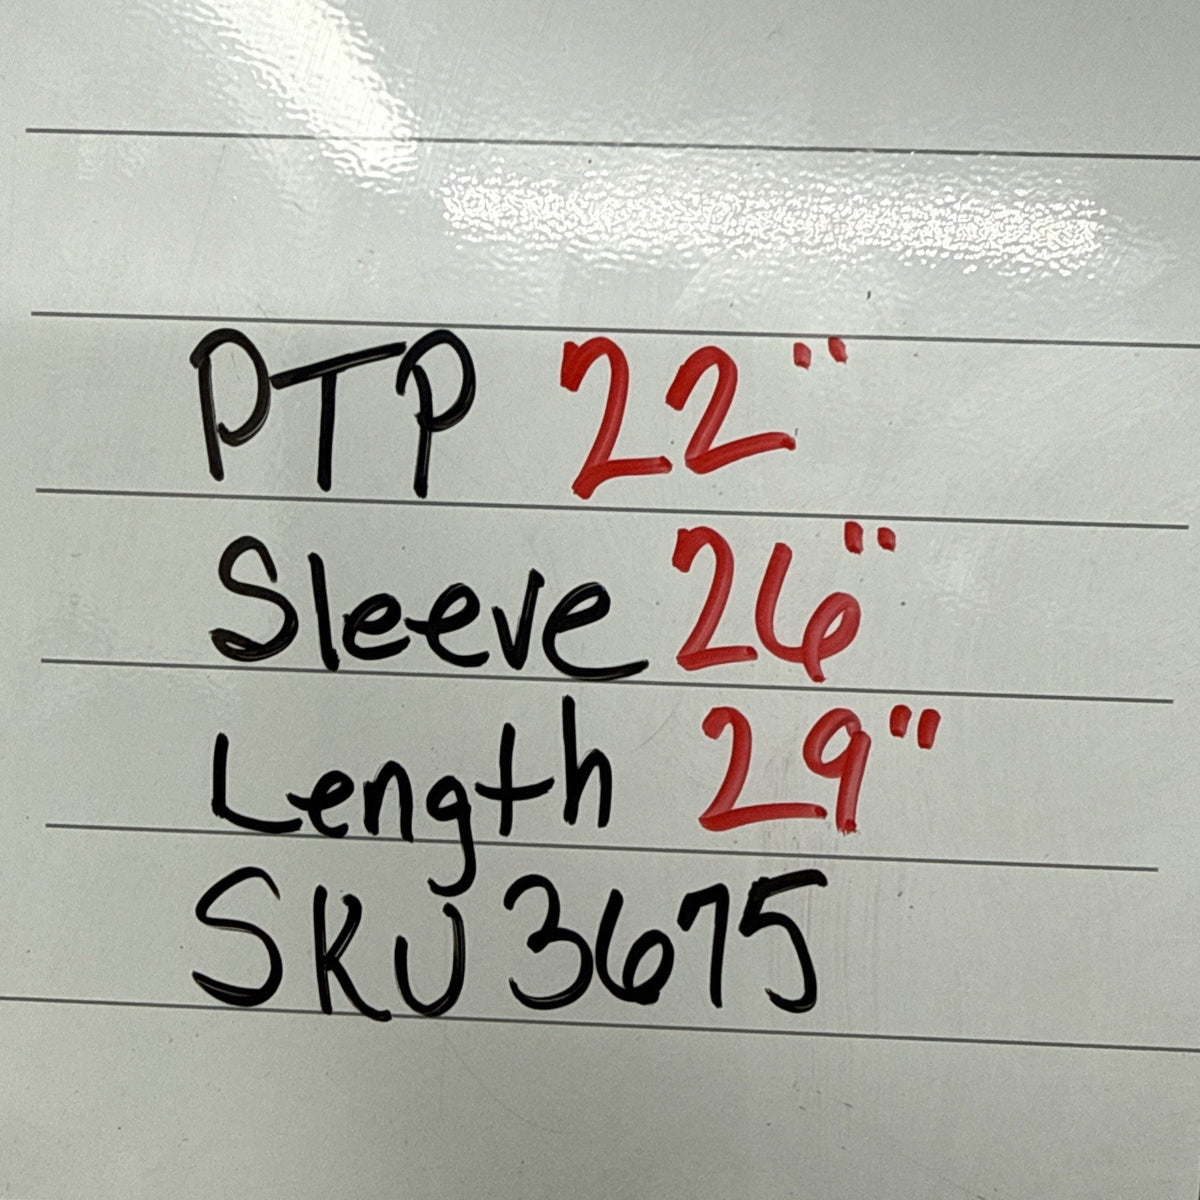 PTP 22"
Sleeve 26"
Length 29"
SKU 3675